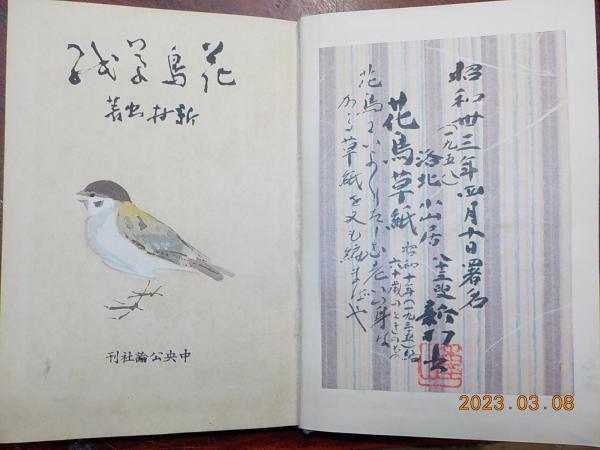 昭和卅三年四月十日署名
(一九五八)
洛北小山居 八十三叟 新村出
花鳥草紙 昭和十年(一九三五)編
六十歳のときのもの
花鳥をいよ〳〵たしむ老の身は
かゝる草紙を又も編まばや
花鳥草紙
新村出著
中央公論社刊
2023.03.08